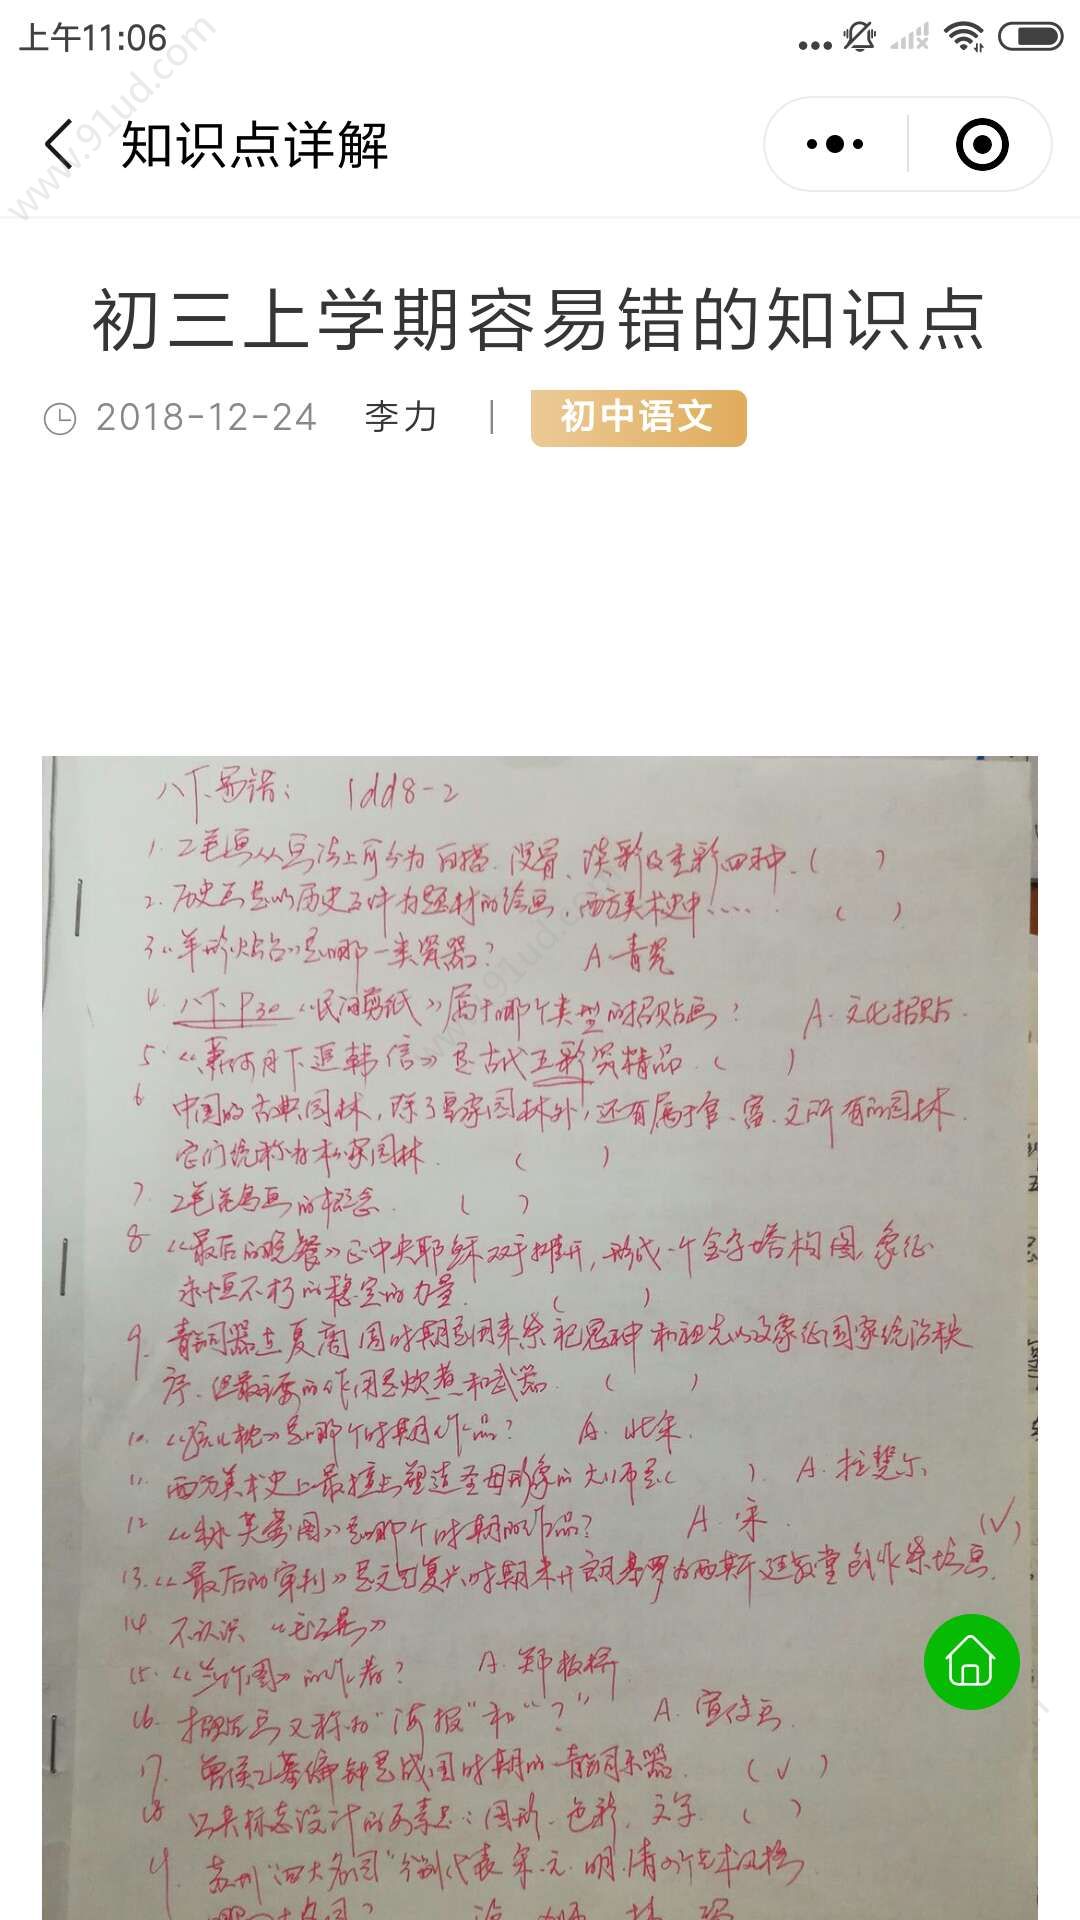 上午11:06
www.91ud.com
知识点详解
初三上学期容易错的知识点
2018-12-24 李力 | 初中语文
八下易错: 1dd8-2
1. 工笔画从画法上可分为白描、没骨、淡彩及重彩四种.( )
2. 历史画是以历史事件为题材的绘画,西方美术史中..... ( )
3.《羊形烛台》是哪一类瓷器? A.青瓷
4. 八下P30《民间剪纸》属于哪个类型的招贴画? A.文化招贴.
5.《萧何月下追韩信》是古代五彩瓷精品.( )
6 中国的古典园林,除了皇家园林外,还有属于官、富、文所有的园林.
它们统称为私家园林. ( )
7. 工笔花鸟画的概念. ( )
8 《最后的晚餐》正中央耶稣双手摊开,形成一个金字塔构图,象征
永恒不朽的稳定的力量. ( )
9. 青铜器在夏商周时期是用来祭祀鬼神和祖先以及象征国家统治秩
序.但最主要的作用是炊煮和武器. ( )
10.《孩儿枕》是哪个时期作品? A.北宋.
11. 西方美术史上最擅长塑造圣母形象的大师是( ). A.拉斐尔
12 《林芙蓉图》是哪个时期的作品? A.宋. (√)
13.《最后的审判》是文艺复兴时期米开朗基罗为西斯廷教堂创作祭坛画.
14. 不认识
15.《兰竹图》的作者? A.郑板桥
16. 招贴画又称为"海报"和"?" A.宣传画.
17. 曾侯乙墓编钟是战国时期的青铜乐器. (√)
18 公共标志设计的要素是:图形、色彩、文字. ( )
苏州"四大名园"分别代表宋.元.明.清的艺术风格